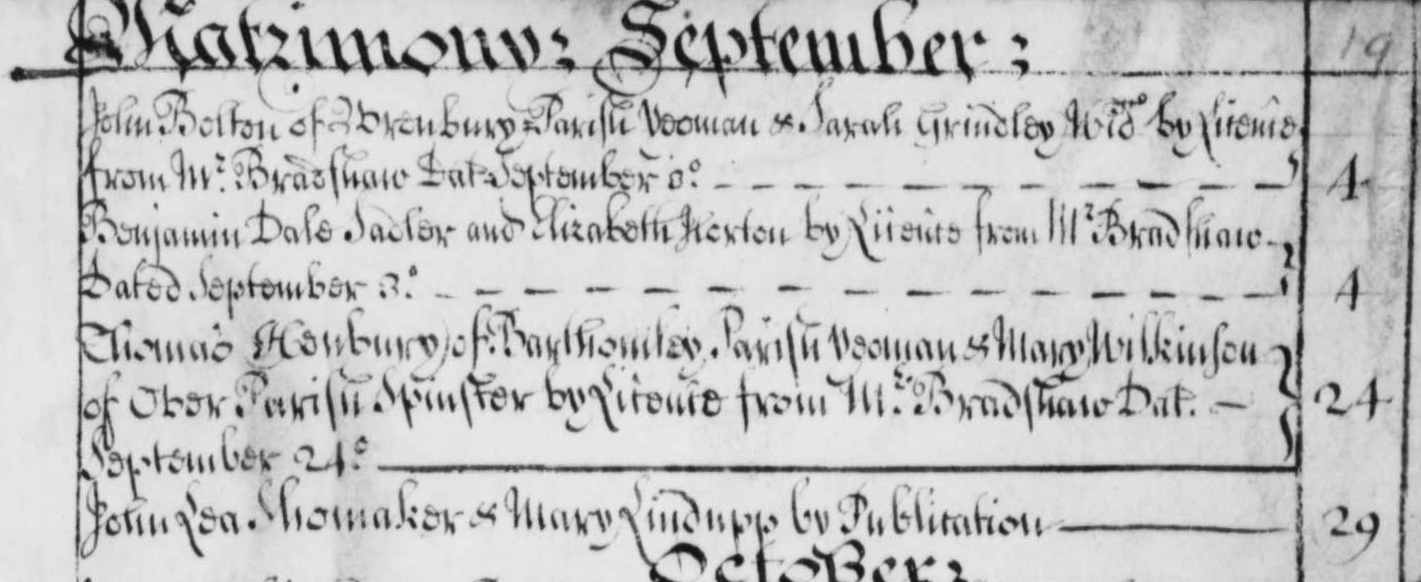 Matrimony: September: 19
John Bolton of Wrenbury Parish Yeoman & Sarah Grindley Wid. by Licence
from Mr. Bradshaw Dat. September 3o. 4
Benjamin Dale Sadler and Elizabeth Horton by Licence from Mr Bradshaw
Dated September 3o. 4
Thomas Henbury of Barthomley Parish Yeoman & Mary Wilkinson
of Over Parish Spinster by Licence from Mr. Bradshaw Dat. 24
September 24o
John Lea Shomaker & Mary Lindupp by Publication 29
October: